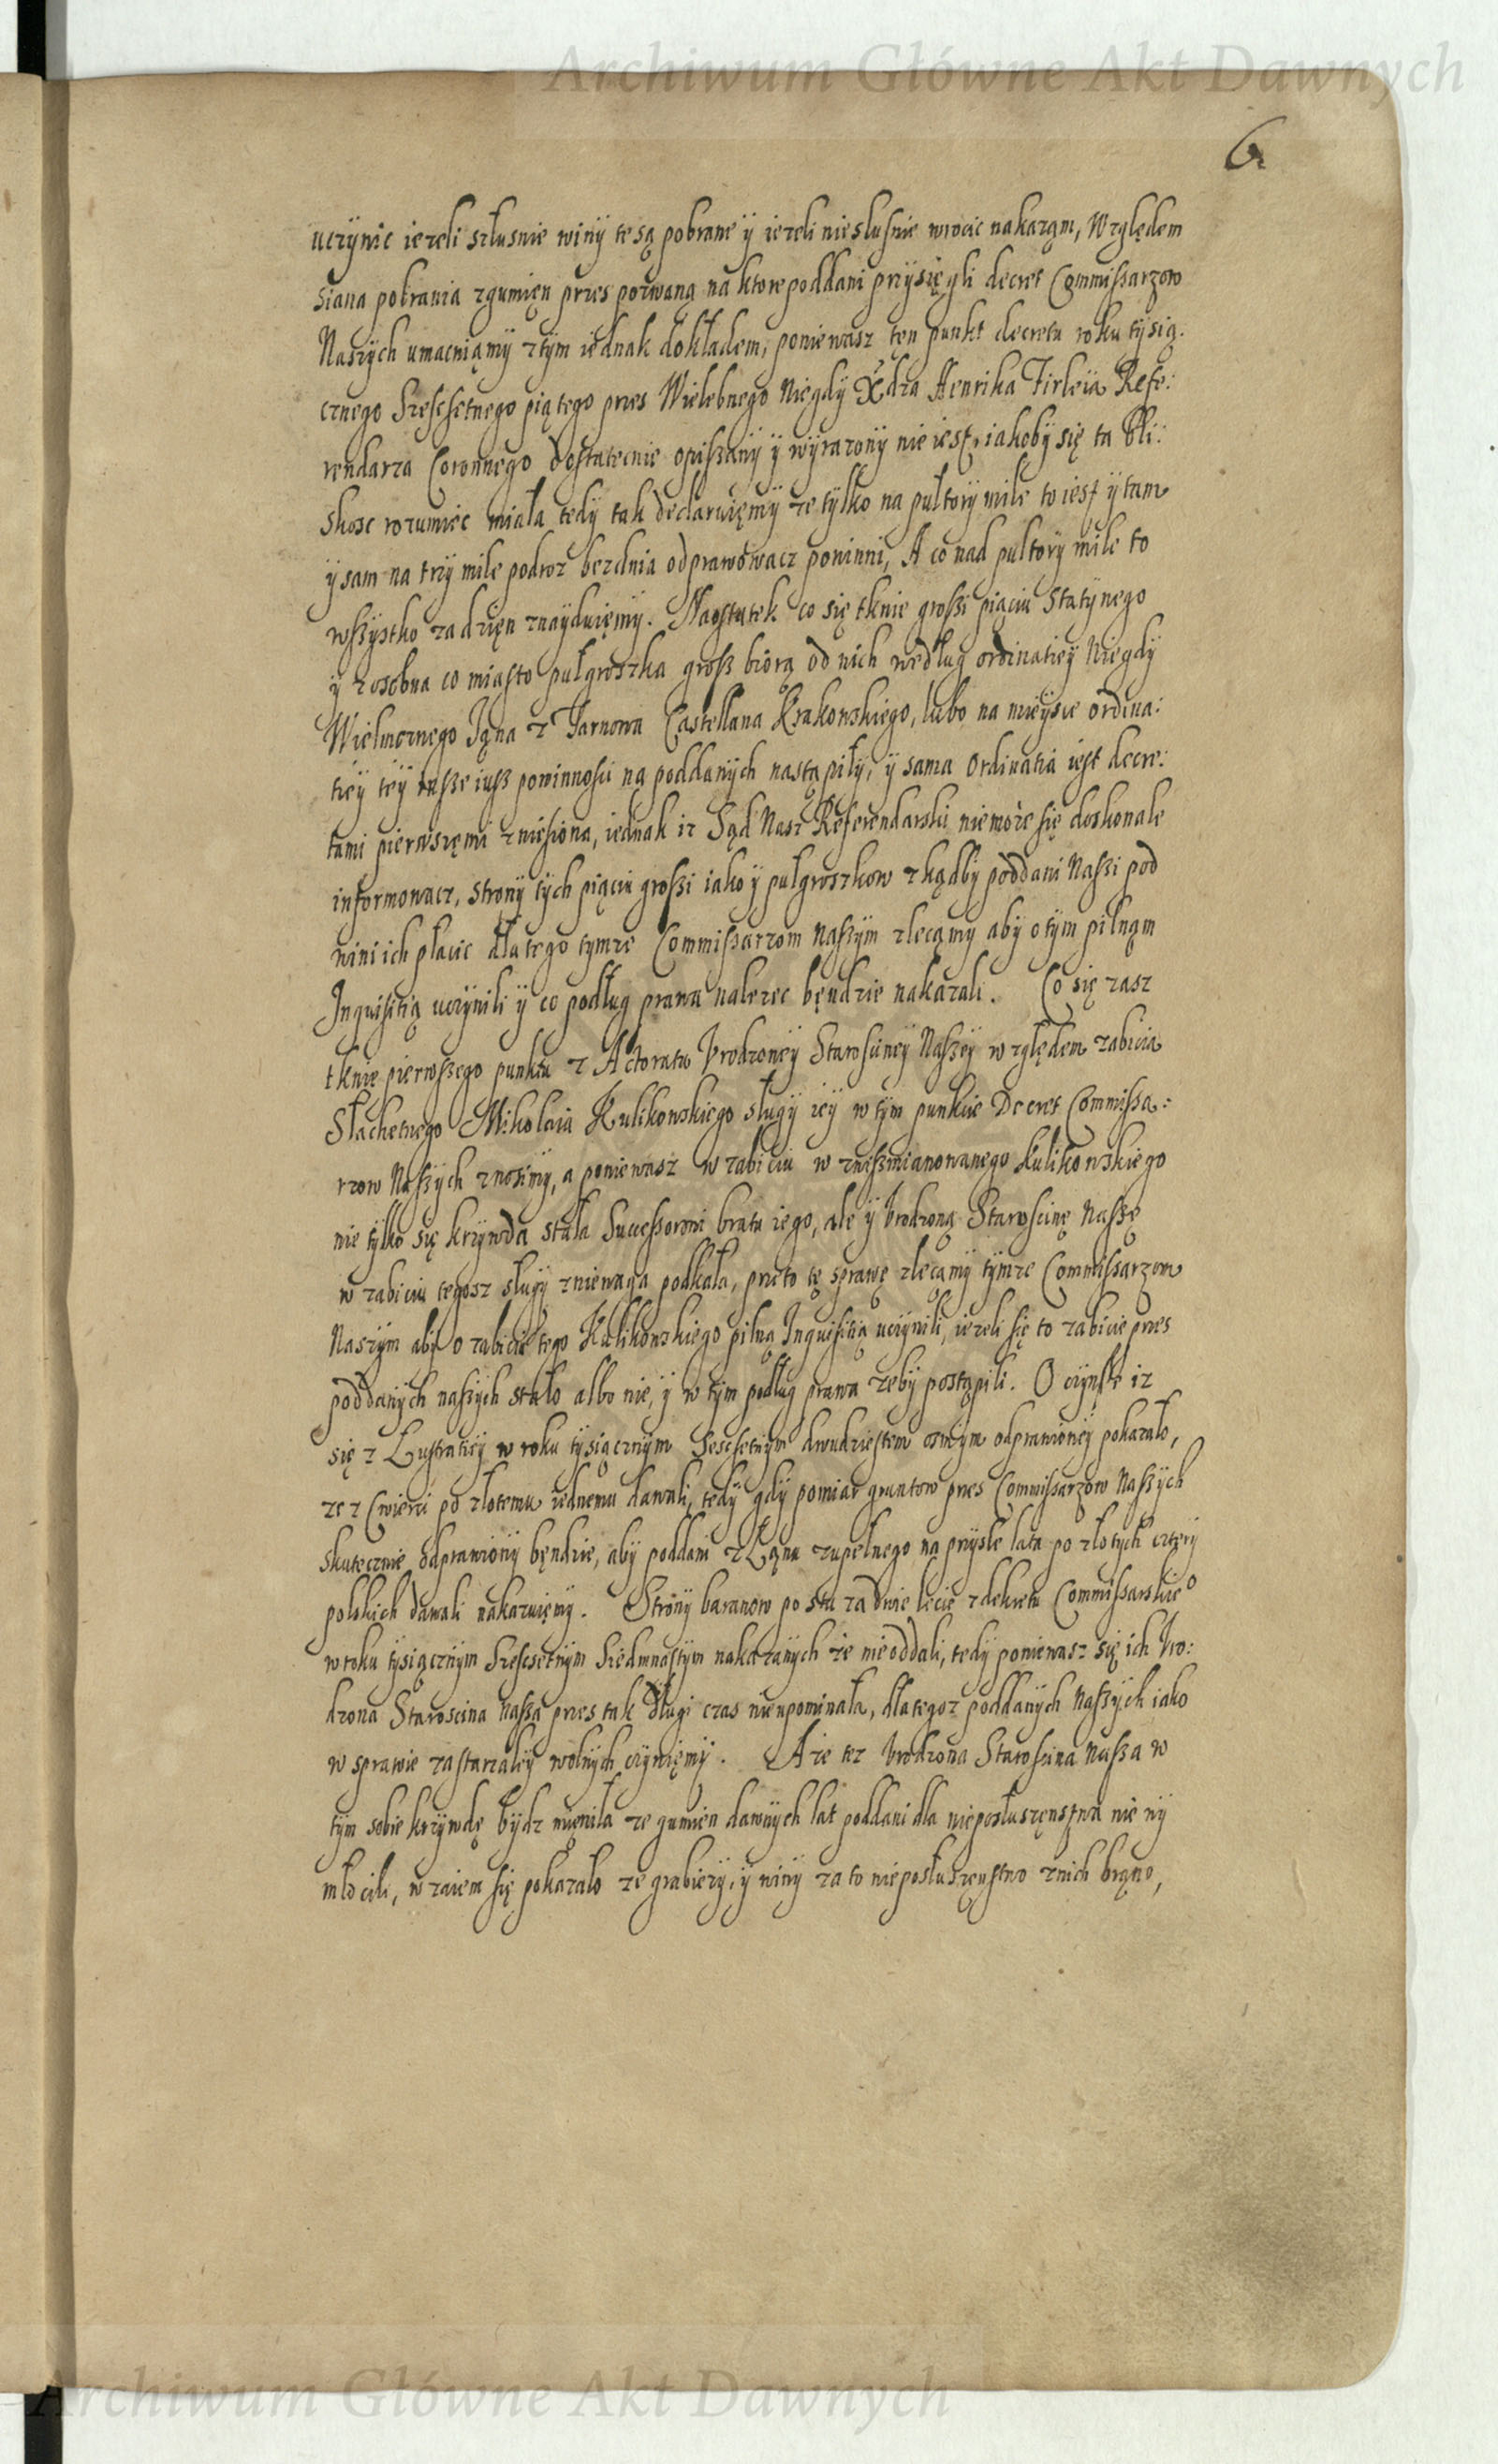 Archiwum Główne Akt Dawnych
6
uczynic iezeli szłusnie winÿ te są pobrane ÿ iezeli nieslusnie wrocic nakaząm, Względem
siana pobrania zgumięn przes porwaną na ktore poddani przÿsięgli decret Commissarzow
Naszÿch umacniąmÿ ztÿm iednak dokładem, poniewasz tęn punkt decretu roku tÿsią.
cznego Szescsetnego piątego przes Wielebnego Niegdÿ Xdza Henrika Firleia Refe:
rendarza Coronnego dostatecnie opissanÿ ÿ wÿrazonÿ nie iest, iakobÿ się ta bli:
skosc rozumiec miała tedÿ tak declaruięmÿ ze tÿlko na pułtorÿ mile to iest ÿ tam
ÿ sam na trzÿ mile podroz bezdnia odprawowacz powinni, A co nad pułtorÿ mile to
wszÿstko za dzięn znaÿduięmÿ. Naostatek co się tknie grossi piąciu Statÿnego
ÿ zosobna co miasto pułgroszka gross biorą od nich według ordinatieÿ Niegdÿ
Wielmoznego Jąna z Tarnowa Castellana Krakowskiego, lubo na mieÿsce ordina:
tiéÿ téÿ insze iusz powinnosci ną poddanÿch nastąpiłÿ, ÿ sama Ordinatia iest decre:
tami pierwszęmi zniesiona, iednak iz Sąd Nasz Referendarski niemoże się doskonale
informowacz, stronÿ tÿch piąciu grossi iako ÿ pułgroszkow zkądbÿ poddani Nassi pod
winni ich płacic dla tego tÿmze Commissarzom Naszÿm zlecąmÿ abÿ o tÿm pilnąm
Inquisitią uczÿnili ÿ co podług prawa nalezec będzie nakazali. Co się zasz
tknie pierwszego punktu z Actoratu Vrodzonéÿ Starosciney Naszéÿ względem zabicia
Słachetnego Mikolaia Kulikowskiego sługÿ ieÿ w tÿm punkcie Decret Commissa:
rzow Naszÿch znosimÿ, a poniewasz w zabiciu wzwissmianowanego Kulikowskiego
nie tÿlko się krzÿwda stała Successorowi bratu iego, ale ÿ Vrodzoną Staroscinę Nassę
w zabiciu tegosz sługÿ zniewaga podkała, przeto tę sprawę zlecąmÿ tÿmze Commissarzom
Naszÿm abÿ o zabicie tego Kulikowskiego pilną Inquisitią uczÿnili, iezeli się to zabicie przes
poddanÿch naszÿch stało albo nie, ÿ w tÿm podług prawa zebÿ postąpili. O czÿnsse iz
się z Lustratieÿ w roku tÿsiącznÿm Szescsetnÿm dwudziestem osmÿm odprawionéÿ pokazało,
ze z Cwierci po złotemu iednemu dawali, tedÿ gdÿ pomiar gruntow przes Commissarzow Naszÿch
skutecznie odprawionÿ będzie, abÿ poddani z Łąnu zupełnego na przÿsłe lata po złotÿch czterÿ
polskich dawali nakazuięmÿ. Stronÿ baranow po stu za dwie lecie z dekretu Commissarskieo
w roku tÿsiącznÿm Szescsetnÿm Siedmnastÿm nakazanÿch że nie oddali, tedÿ poniewasz się ich Vro:
dzona Staroscina Nassa przes tak długi czas nieupominała, dlategoz poddanÿch Naszÿch iako
w sprawie zastarzałéÿ wolnÿch czÿnięmÿ. A ze tez Vrodzona Staroscina Nassa w
tÿm sobie krzÿwdę bÿdz mięniła ze gumien dawnÿch lat poddani dla nieposłuszęnstwa nie wÿ
młocili, wzaiem się pokazało ze grabierzÿ, ÿ winÿ za to nieposłuszęnstwo znich brąno,
Archiwum Główne Akt Dawnych